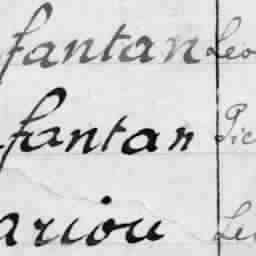 fantan Leo
fantan Pic
ariou Le